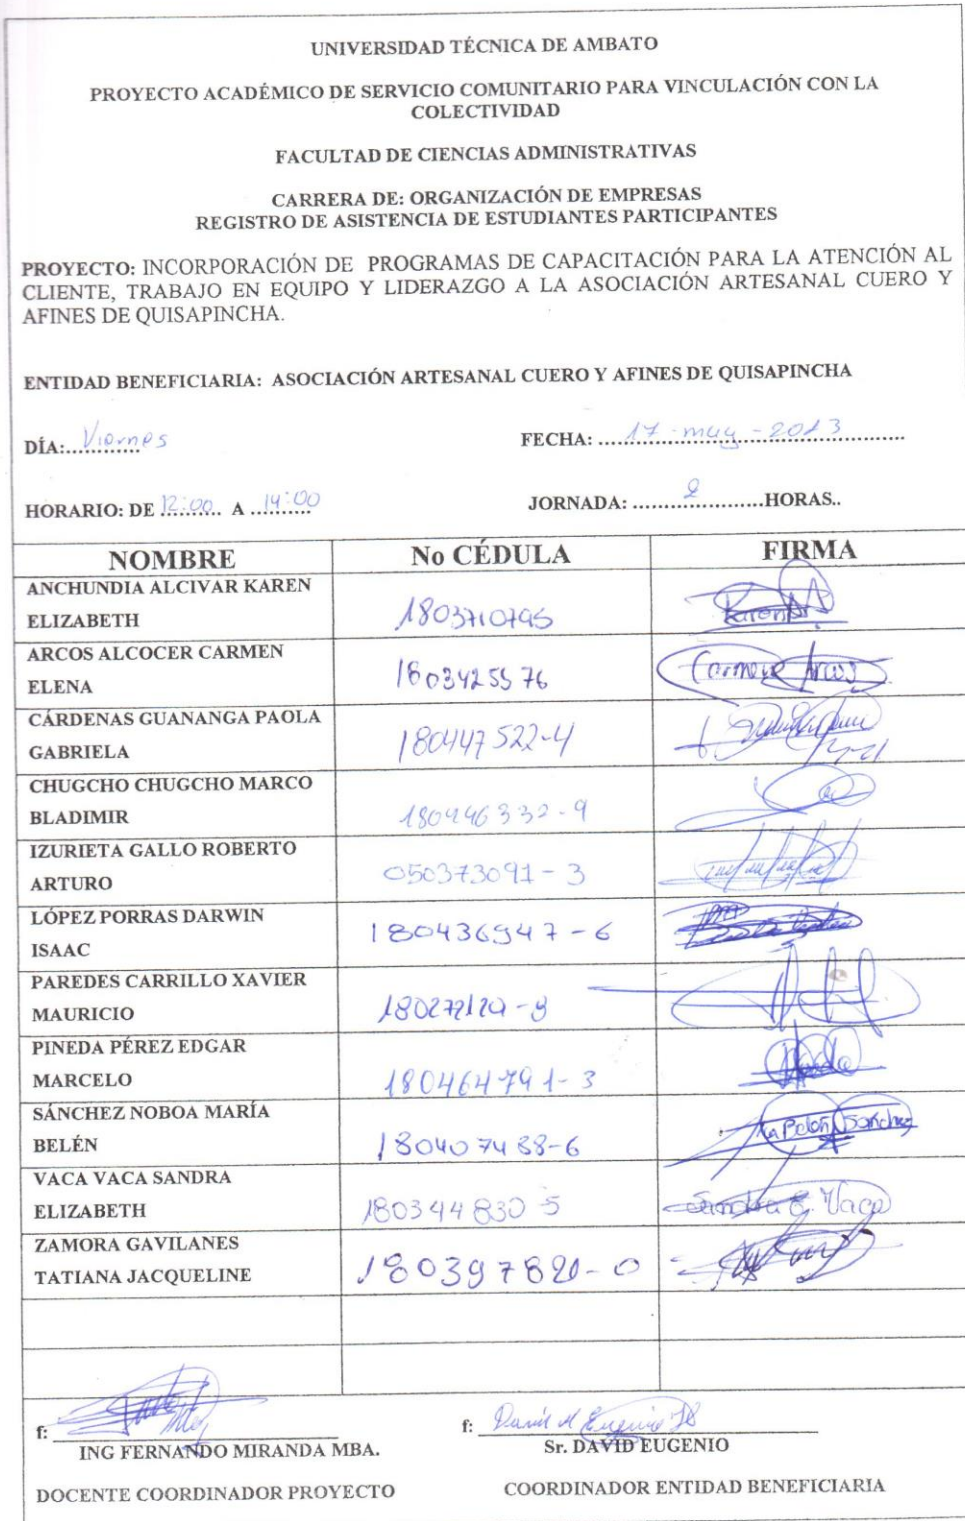 UNIVERSIDAD TÉCNICA DE AMBATO
PROYECTO ACADÉMICO DE SERVICIO COMUNITARIO PARA VINCULACIÓN CON LA
COLECTIVIDAD
FACULTAD DE CIENCIAS ADMINISTRATIVAS
CARRERA DE: ORGANIZACIÓN DE EMPRESAS
REGISTRO DE ASISTENCIA DE ESTUDIANTES PARTICIPANTES
PROYECTO: INCORPORACIÓN DE PROGRAMAS DE CAPACITACIÓN PARA LA ATENCIÓN AL
CLIENTE, TRABAJO EN EQUIPO Y LIDERAZGO A LA ASOCIACIÓN ARTESANAL CUERO Y
AFINES DE QUISAPINCHA.
ENTIDAD BENEFICIARIA: ASOCIACIÓN ARTESANAL CUERO Y AFINES DE QUISAPINCHA
DÍA: Viernes FECHA: 17 - may - 2013
HORARIO: DE 12:00 A 14:00 JORNADA: 2 HORAS..
NOMBRE No CÉDULA FIRMA
ANCHUNDIA ALCIVAR KAREN
ELIZABETH 1803710795 Karen
ARCOS ALCOCER CARMEN
ELENA 1803425576 Carmen Arcos
CÁRDENAS GUANANGA PAOLA
GABRIELA 180447522-4
CHUGCHO CHUGCHO MARCO
BLADIMIR 180446332-9
IZURIETA GALLO ROBERTO
ARTURO 050373091-3
LÓPEZ PORRAS DARWIN
ISAAC 180436947-6
PAREDES CARRILLO XAVIER
MAURICIO
PINEDA PÉREZ EDGAR
MARCELO 180464791-3
SÁNCHEZ NOBOA MARÍA
BELÉN 180407488-6 Ma Belén Sánchez
VACA VACA SANDRA
ELIZABETH 180344830-5 Sandra E. Vaca
ZAMORA GAVILANES
TATIANA JACQUELINE 180397820-0
f: f: David M Eugenio
ING FERNANDO MIRANDA MBA. Sr. DAVID EUGENIO
DOCENTE COORDINADOR PROYECTO COORDINADOR ENTIDAD BENEFICIARIA